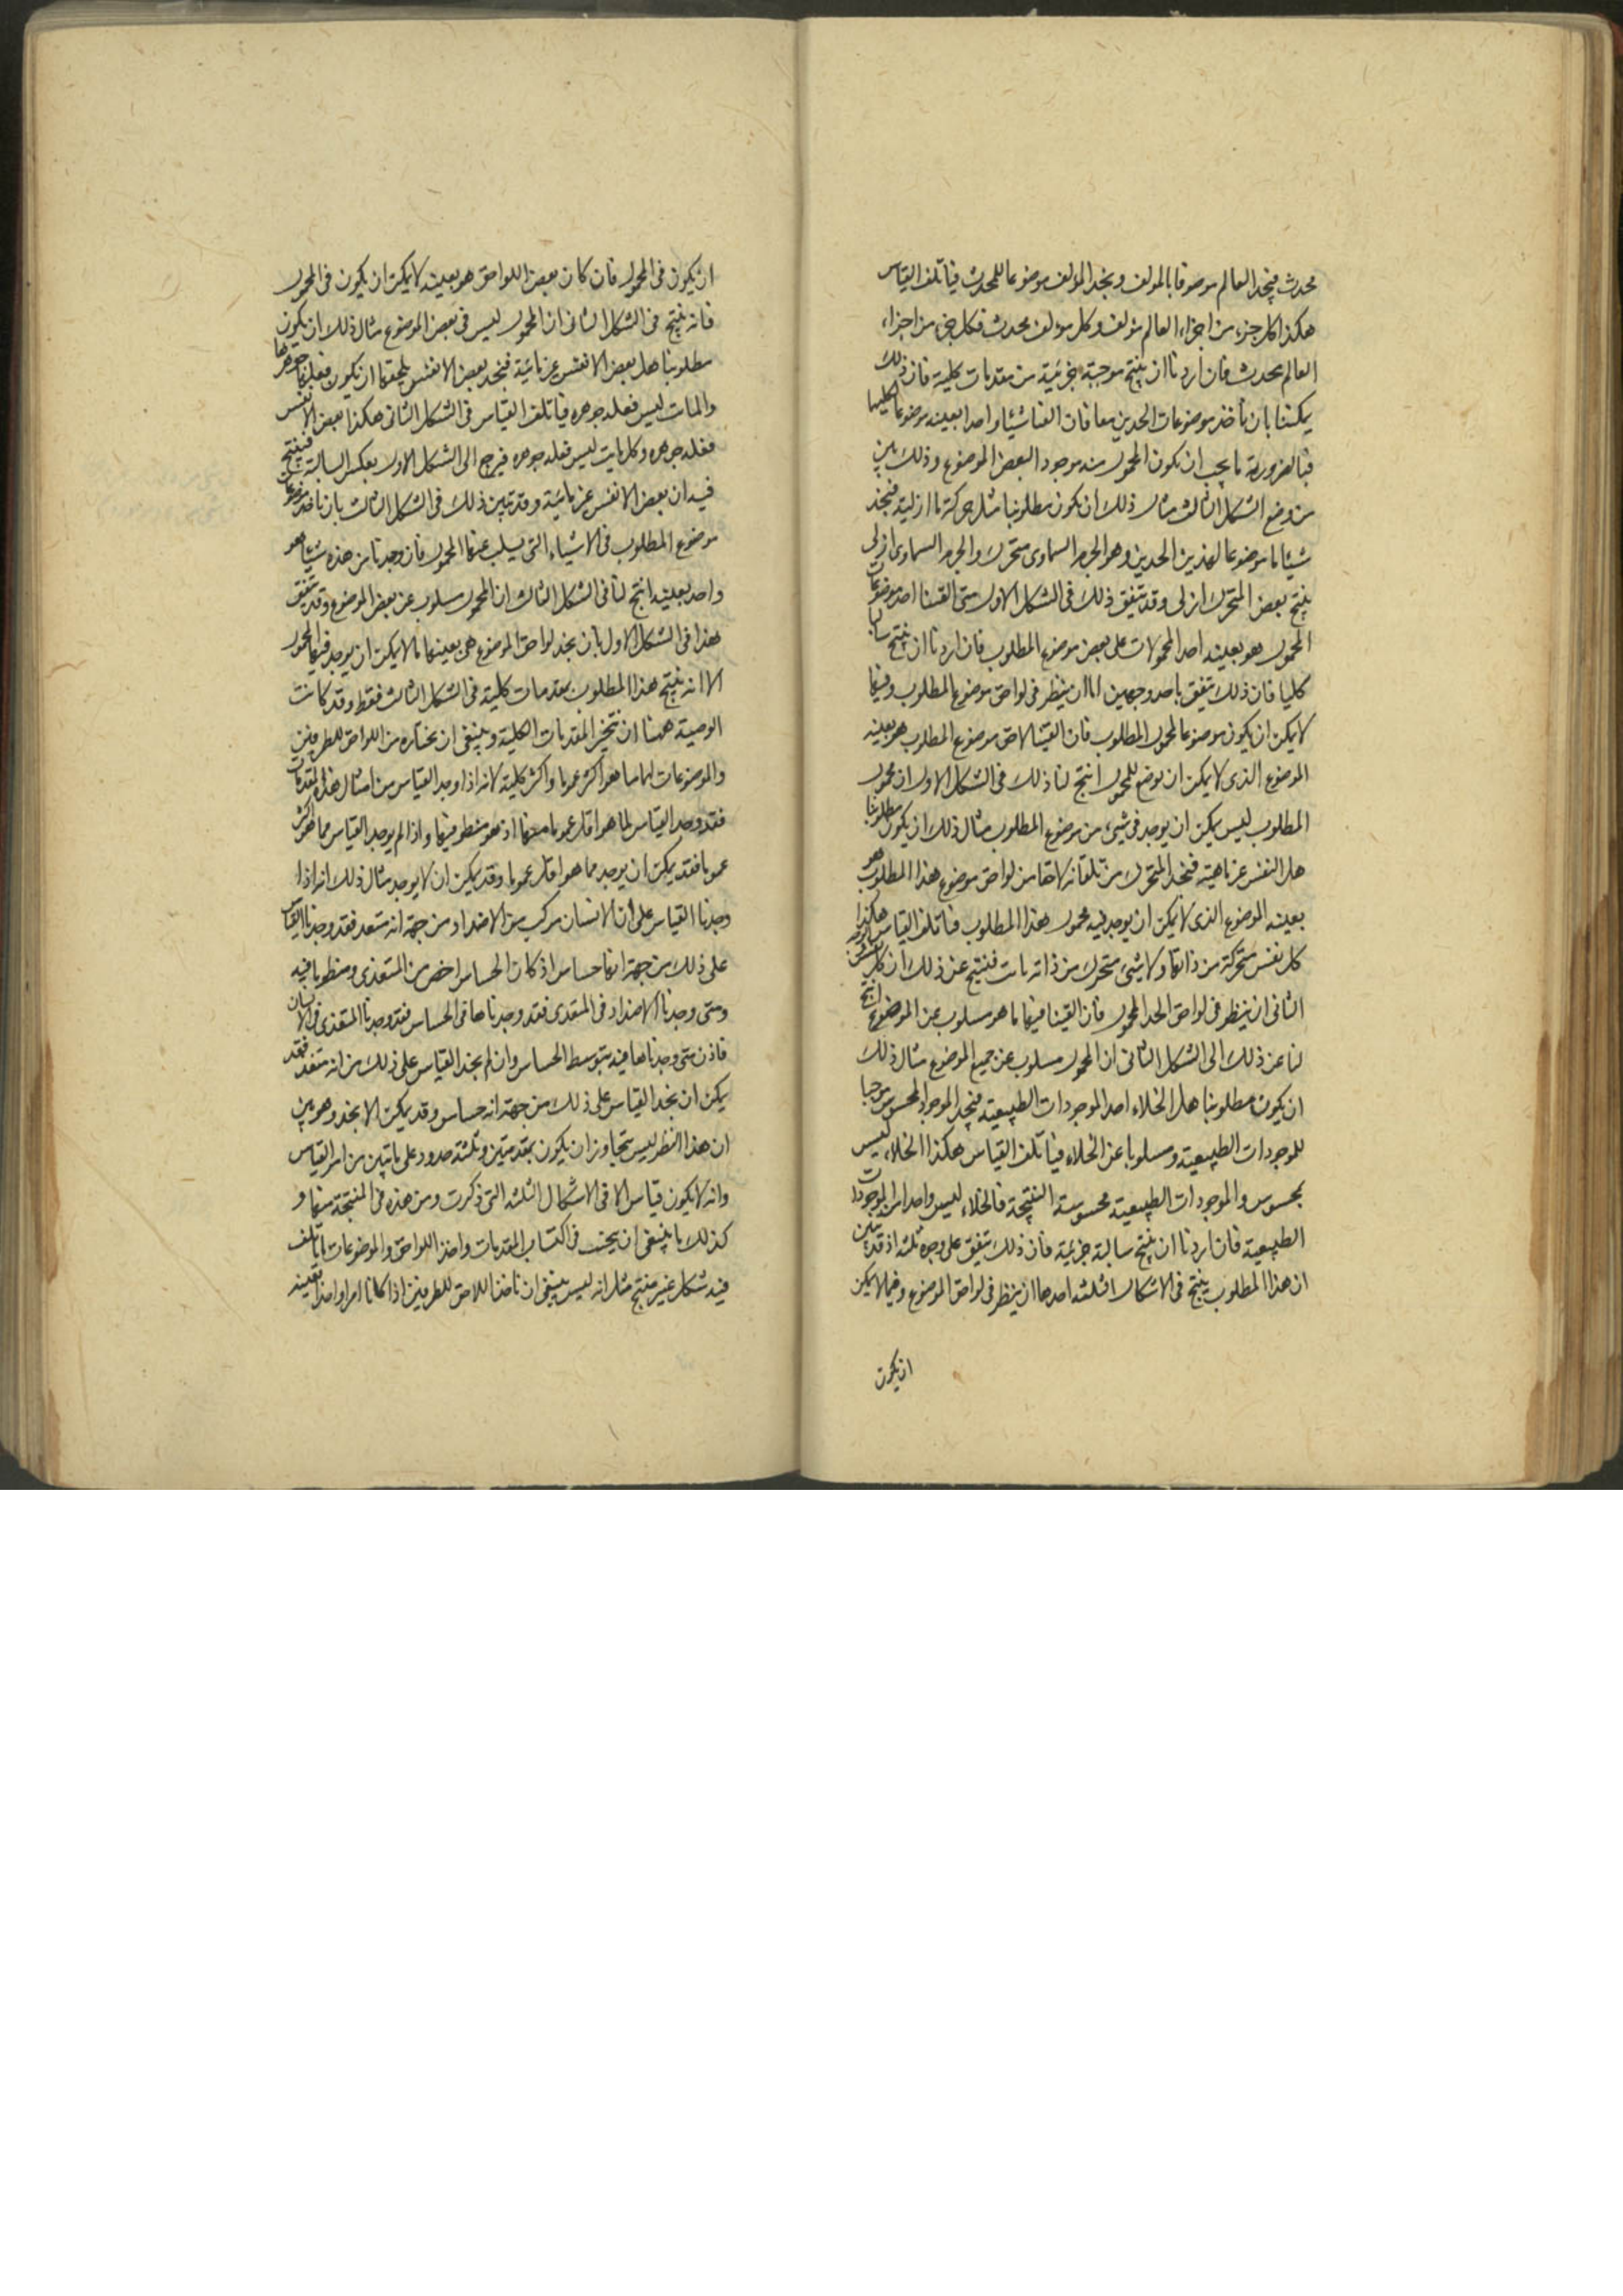 محدث فنجد العالم موصوفا بالمولف ونجد المؤلف موضوعا للمحدث فياتلف القياس
هكذا كل جزء من اجزاء العالم مؤلف وكل مؤلف محدث فكل جزء من اجزاء
العالم محدث فان اردنا ان ينتج موجبة جزئية من مقدمات كلية فان ذلك
يمكننا بان نأخذ موضوعات الحدين معا فان الفينا شيئا واحدا بعينه موضوعا لكليهما
فبالضرورية ما يجب ان يكون المحمول منه موجود البعض الموضوع وذلك بين
من وضع الشكل الثالث مثال ذلك ان يكون مطلوبنا مثل حركة ما ازلية فنجد
شيئا ما موضوعا لهذين الحدين وهو الجرم السماوى متحرك والجرم السماوى ازلى
ينتج بعض المتحرك ازلى وقد يتفق ذلك فى الشكل الاول متى الفينا احد موضوعات
المحمول هو بعينه احد المحمولات على بعض موضوع المطلوب فان اردنا ان ينتج سالبا
كليا فان ذلك يتفق باحد وجهين اما ان ينظر فى لواحق موضوع المطلوب وفيما
لا يمكن ان يكون موضوعا لمحمول المطلوب فان الفينا لاحق موضوع المطلوب هو بعينه
الموضوع الذى لا يمكن ان يوضع للمحمول انتج لنا ذلك فى الشكل الاول ان محمول
المطلوب ليس يمكن ان يوجد فى شىء من موضوع المطلوب مثال ذلك ان يكون مطلوبنا
هل النفس غير مائتة فنجد المتحرك من تلقائه لاحقا من لواحق موضوع هذا المطلوب هو
بعينه الموضوع الذى لا يمكن ان يوجد فيه محمول هذا المطلوب فياتلف القياس هكذا
كل نفس متحركة من ذاتها ولا شىء متحرك من ذاته مائت فينتج عن ذلك ان كل نفس
الثانى ان ينظر فى لواحق الحد المحمول فان الفينا فيها ما هو مسلوب عن الموضوع انتج
لنا عن ذلك فى الشكل الثانى ان المحمول مسلوب عن جميع الموضوع مثال ذلك
ان يكون مطلوبنا هل الخلاء احد الموجودات الطبيعية فنجد الموجود المحسوس موجبا
للموجودات الطبيعية ومسلوبا عن الخلاء فياتلف القياس هكذا الخلاء ليس
بمحسوس والموجودات الطبيعية محسوسة النتيجة فالخلاء ليس واحدا من الموجودات
الطبيعية فان اردنا ان ينتج سالبة جزئية فان ذلك يتفق على وجوه ثلثه اذ قد تبين
ان هذا المطلوب ينتج فى الاشكال الثلثه احدها ان ينظر فى لواحق الموضوع وفيما لا يمكن
ان يكون
ان يكون فى المحمول فان كان بعض اللواحق هو بعينه لا يمكن ان يكون فى المحمول
فانه ينتج فى الشكل الثانى ان المحمول ليس فى بعض الموضوع مثال ذلك ان يكون
مطلوبنا هل بعض الانفس غير مائية فنجد بعض الانفس يلحقها ان يكون فعلها جوهرها
والمائت ليس فعله جوهره فياتلف القياس فى الشكل الثانى هكذا بعض الانفس
فعله جوهره وكل مايت ليس فعله جوهره فيرجع الى الشكل الاول بعكس السالبة فينتج
فيه ان بعض الانفس غير مائية وقد تبين ذلك فى الشكل الثالث بان ناخذ موضوعات
موضوع المطلوب فى الاشياء التى يسلب عنها المحمول فان وجدنا من هذه شيئا هو
واحد بعينه انتج لنا فى الشكل الثالث ان المحمول مسلوب عن بعض الموضوع وقد يتفق
هذا فى الشكل الاول بان نجد لواحق الموضوع هى بعينها ما لا يمكن ان يوجد فيها المحمول
الا انه ينتج هذا المطلوب بمقدمات كلية فى الشكل الثالث فقط وقد كانت
الوصية ههنا ان نتخير المقدمات الكلية وينبغى ان نختاره من اللواحق للطرفين
والموضوعات لهما ما هو اكثر عموما واكثر كلية لانه اذا وجد القياس من امثال هذه المقدمات
فقد وجد القياس لما هو اقل عموما منها اذ هو منطو فيها واذا لم يوجد القياس مما هو اكثر
عموما فقد يمكن ان يوجد مما هو اقل عموما وقد يمكن ان لا يوجد مثال ذلك انه اذا
وجدنا القياس على ان الانسان مركب من الاضداد من جهة انه متغذ فقد وجدنا القياس
على ذلك من جهة انها حساس اذ كان الحساس اخص من المتغذى ومنطويا فيه
ومتى وجدنا الاضداد فى المتغذى فقد وجدناها فى الحساس فقد وجدنا المتغذى فى الانسان
فاذن متى وجدناها فيه بتوسط الحساس وان لم نجد القياس على ذلك من انه متغذ فقد
يمكن ان نجد القياس على ذلك من جهة انه حساس وقد يمكن الا نجد وهو بين
ان هذا النظر ليس يتجاوز ان يكون بمقدمتين وثلثة حدود على ما تبين من امر القياس
وانه لا يكون قياس الا فى الاشكال الثلثه التى ذكرت ومن هذه فى المنتجة منها و
كذلك ما ينبغى ان يجتنب فى اكتساب المقدمات واخذ اللواحق والموضوعات ما ياتلف
فيه شكل غير منتج مثل انه ليس ينبغى ان ناخذ اللاحق للطرفين اذا كانا امرا واحدا بعينه